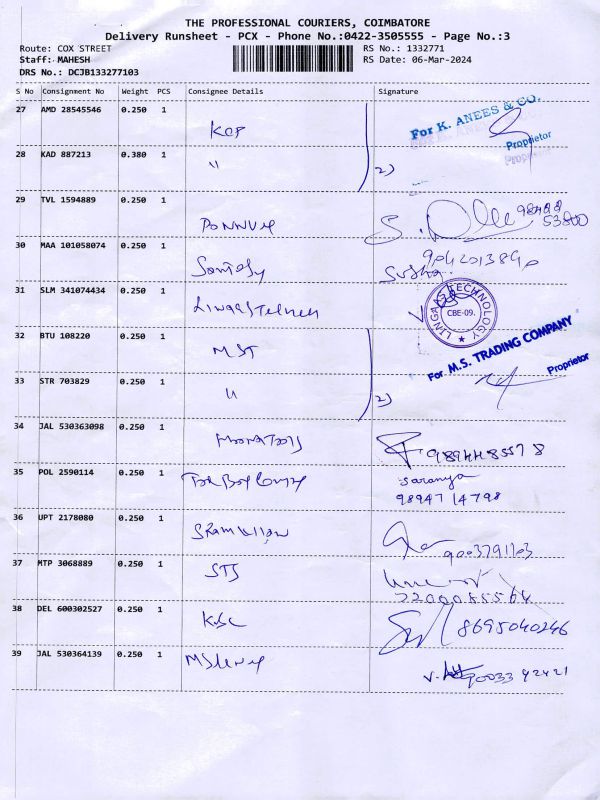 THE PROFESSIONAL COURIERS, COIMBATORE
Delivery Runsheet - PCX - Phone No.:0422-3505555 - Page No.:3
Route: COX STREET RS No.: 1332771
Staff: MAHESH RS Date: 06-Mar-2024
DRS No.: DCJB133277103
S No Consignment No Weight PCS Consignee Details Signature
27 AMD 28545546 0.250 1 KCP For K. ANEES & CO.
Proprietor
28 KAD 887213 0.380 1 " 2)
29 TVL 1594889 0.250 1 98422
53800
30 MAA 101058074 0.250 1
31 SLM 341074434 0.250 1 LINGA'S TECHNOLOGY
CBE-09.
32 BTU 108220 0.250 1 MST For M.S. TRADING COMPANY
Proprietor
33 STR 703829 0.250 1 " 2)
34 JAL 530363098 0.250 1 9894485578
35 POL 2590114 0.250 1 Saranya
98947 14798
36 UPT 2178080 0.250 1
37 MTP 3068889 0.250 1 STS
38 DEL 600302527 0.250 1 8695040246
39 JAL 530364139 0.250 1 90033 42421